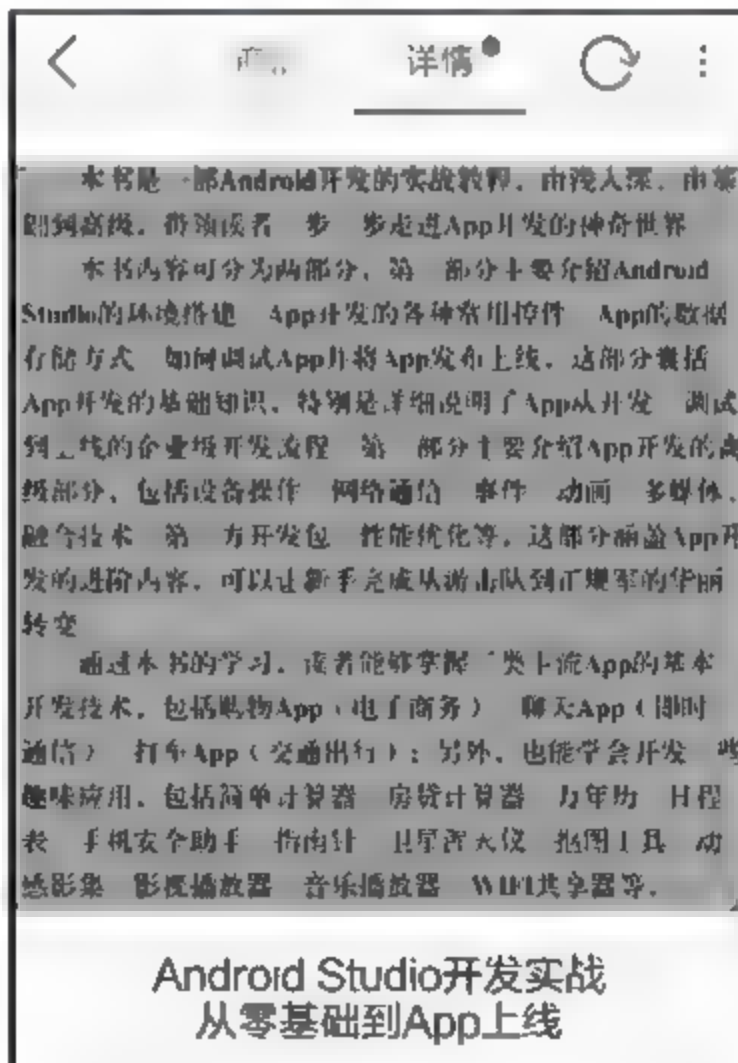 详情
本书是一部Android开发的实战教程，由浅入深、由基
础到高级，带领读者一步一步走进App开发的神奇世界
本书内容可分为两部分，第一部分主要介绍Android
Studio的环境搭建、App开发的各种常用控件、App的数据
存储方式、如何调试App并将App发布上线，这部分囊括
App开发的基础知识，特别是详细说明了App从开发、调试
到上线的企业级开发流程 第二部分主要介绍App开发的高
级部分，包括设备操作、网络通信、事件、动画、多媒体、
融合技术、第三方开发包、性能优化等，这部分涵盖App开
发的进阶内容，可以让新手完成从游击队到正规军的华丽
转变
通过本书的学习，读者能够掌握三类主流App的基本
开发技术，包括购物App（电子商务）、聊天App（即时
通信）、打车App（交通出行）；另外，也能学会开发一些
趣味应用，包括简单计算器、房贷计算器、万年历、日程
表、手机安全助手、指南针、卫星浑天仪、抠图工具、动
感影集、影视播放器、音乐播放器、WiFi共享器等。
Android Studio开发实战
从零基础到App上线